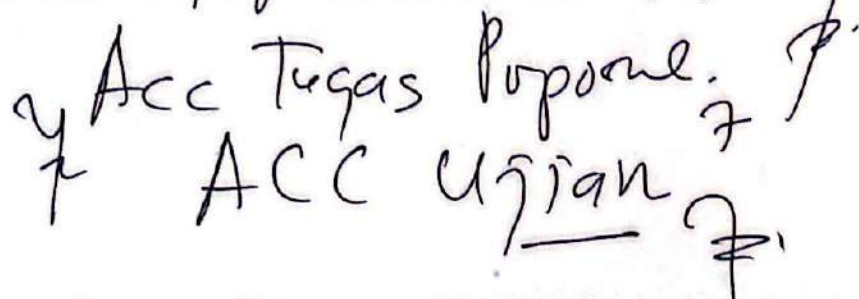 Acc Tugas Proposal.
ACC Ujian